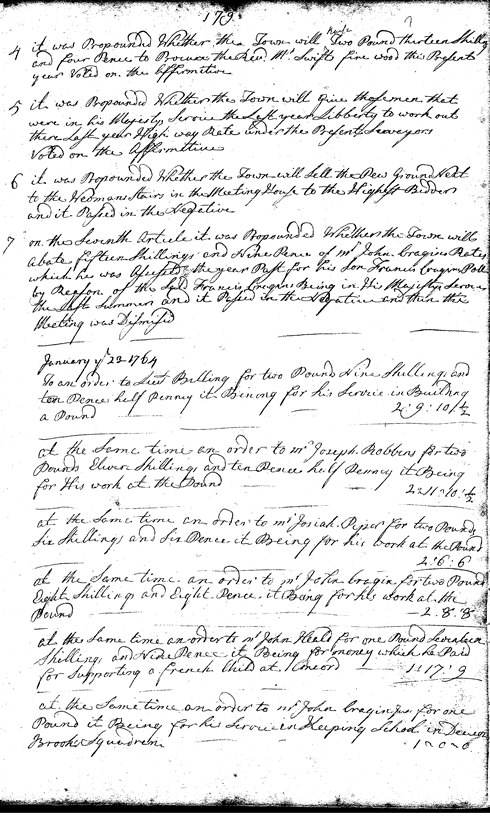 179
4 it was Propounded Whether the Town will Two Pound thirteen Shilling
and four Pence to Procure the Revd Mr. Swifts fire wood this Present
year Voted on the Affirmitive
5 it was Propounded Whether the Town will Give those men that
were in his Majestys Service the Last year Libberty to work out
there Last year High way Rate under the Present Surveyors
Voted on the Affirmitive
6 it was Propounded Whether the Town will Sell the Pew Ground Next
to the Womans Stairs in the Meeting House to the Highest Bidder
and it Passed in the Negative
7 on the Seventh Article it was Propounded Whether the Town will
abate fifteen Shillings and Nine Pence of Mr John Cragins Rates
which he was Assessed the year Past for his Son Francis Cragins Poll
by Reason of the Said Francis Cragins Being in His Majestys Service
the Last Summer and it Passed in the Negative and then the
Meeting was Dismissed
January ye 23 1764
To an order to Lieut Billing for two Pound Nine Shillings and
ten Pence half Penney it Being for his Service in Building
a Pound 2:9:10 1/2
at the Same time an order to Mr Joseph Robbins for two
Pounds Eleven Shillings and ten Pence half Penney it Being
for His work at the Pound 2:11:10 1/2
at the Same time an order to Mr Josiah Piper for two Pounds
Six Shillings and Six Pence it Being for his work at the Pound
2:6:6
at the Same time an order to Mr John Cragin for two Pound
Eight Shillings and Eight Pence it Being for his work at the
Pound 2.8.8
at the Same time an order to Mr John Heald for one Pound Seventeen
Shillings and Nine Pence it Being for money which he Paid
for Supporting a french Child at Concord 1:17:9
at the Same time an order to Mr John Cragin Jun for one
Pound it Being for his Service in Keeping School in
Brook Squadron 1:0:0